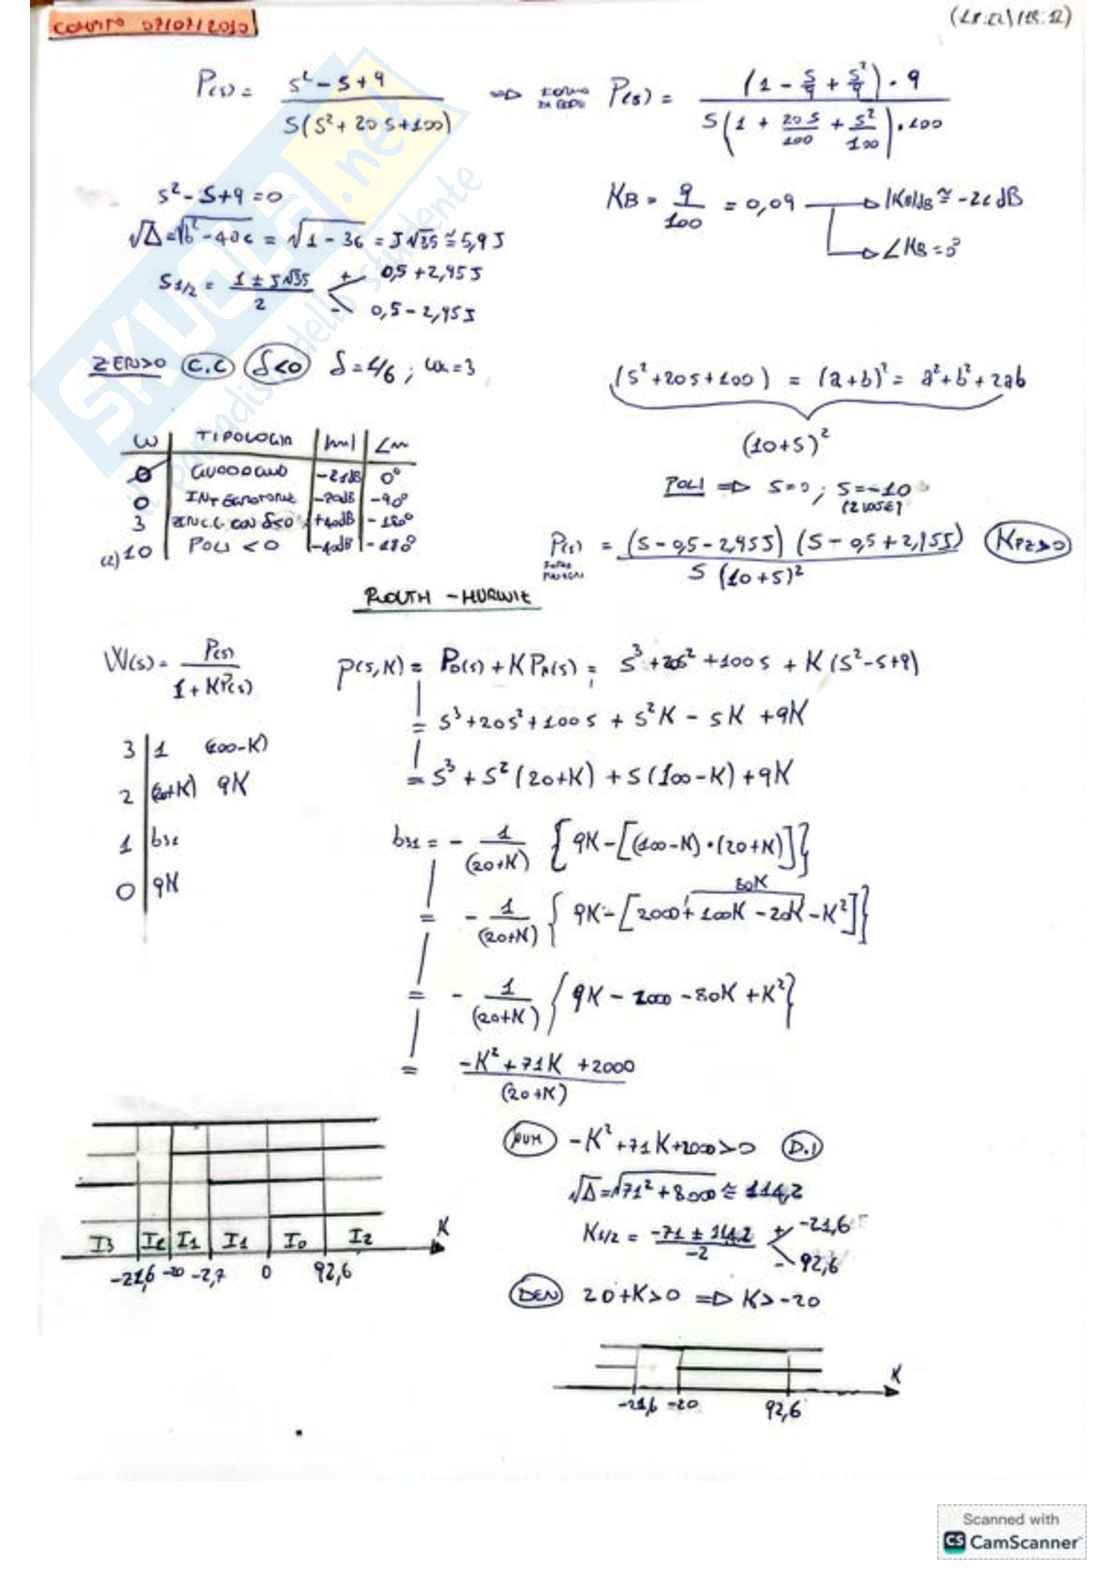 COMPITO 07/07/2010
P(s) = (s² - s + 9) / (s(s² + 20s + 100)) ⇒ FORMA DI BODE P(s) = ((1 - s/9 + s²/9) · 9) / (s(1 + 20s/100 + s²/100) · 100)
s² - s + 9 = 0
√Δ = √b² - 4ac = √1 - 36 = J√35 ≅ 5,9 J
s1/2 = (1 ± J√35) / 2
+ 0,5 + 2,95J
- 0,5 - 2,95J
KB = 9/100 = 0,09 → |KB|dB ≅ -21 dB
→ ∠KB = 0°
ZERI>0 C.C δ<0 δ = 1/6 ; ωn = 3
(s² + 20s + 100) = (a + b)² = a² + b² + 2ab
(10 + s)²
ω TIPOLOGIA |m| ∠m
0 GUADAGNO -21dB 0°
0 INTEGRATORE -20dB -90°
3 ZERI C.C. CON δ<0 +40dB -180°
(2) 10 POLI <0 -40dB -180°
POLI ⇒ s = 0 ; s = -10
(2 VOLTE)
P(s) = ((s - 0,5 - 2,95J) (s - 0,5 + 2,95J)) / (s (10 + s)²) KPZ>0
ROUTH - HURWITZ
W(s) = P(s) / (1 + KP(s))
p(s,K) = PD(s) + K PN(s) = s³ + 20s² + 100s + K(s² - s + 9)
= s³ + 20s² + 100s + s²K - sK + 9K
= s³ + s²(20+K) + s(100-K) + 9K
3 | 1 (100-K)
2 | (20+K) 9K
1 | b31
0 | 9K
b31 = - 1/(20+K) {9K - [(100-K)·(20+K)]}
80K
= - 1/(20+K) {9K - [2000 + 100K - 20K - K²]}
= - 1/(20+K) {9K - 2000 - 80K + K²}
= (-K² + 71K + 2000) / (20+K)
NUM -K² + 71K + 2000 > 0 D.I
√Δ = √71² + 8000 ≅ 114,2
K1/2 = (-71 ± 114,2) / -2
+ -21,6
- 92,6
DEN 20 + K > 0 ⇒ K > -20
I3 I2 I1 I1 I0 I2 K
-21,6 -20 -2,7 0 92,6
K
-21,6 -20 92,6
Scanned with
CS CamScanner
SKUOLA.net
il paradiso dello studente